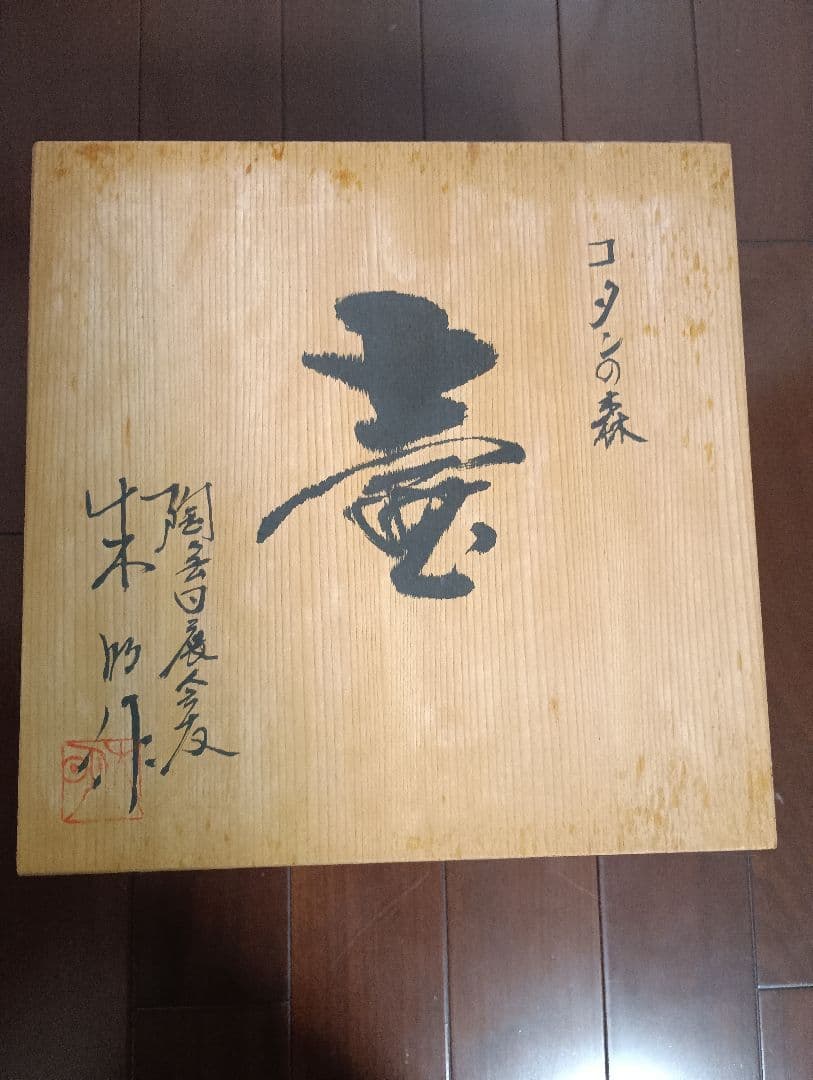 コタンの森
壷
陶芸日展会友
朱木 明作